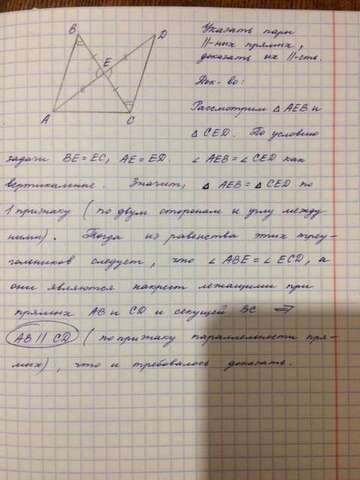 B
D
E
A
C
Указать пары
||-ных прямых,
доказать их ||-сть.
Док-во:
Рассмотрим △ AEB и
△ CED. По условию
задачи BE = EC, AE = ED. ∠ AEB = ∠ CED как
вертикальные. Значит, △ AEB = △ CED по
1 признаку (по двум сторонам и углу между
ними). Тогда из равенства этих треу-
гольников следует, что ∠ ABE = ∠ ECD, а
они являются накрест лежащими при
прямых AB и CD и секущей BC ⇒
AB || CD (по признаку параллельности пря-
мых), что и требовалось доказать.